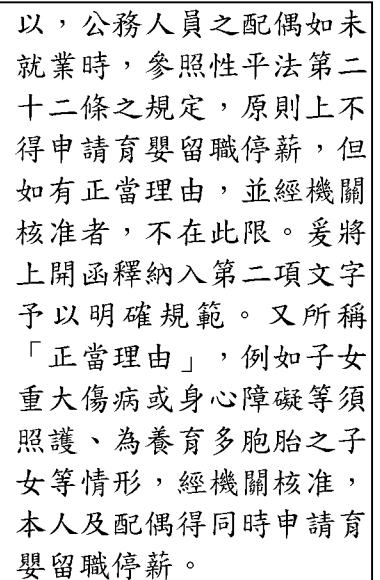 以，公務人員之配偶如未
就業時，參照性平法第二
十二條之規定，原則上不
得申請育嬰留職停薪，但
如有正當理由，並經機關
核准者，不在此限。爰將
上開函釋納入第二項文字
予以明確規範。又所稱
「正當理由」，例如子女
重大傷病或身心障礙等須
照護、為養育多胞胎之子
女等情形，經機關核准，
本人及配偶得同時申請育
嬰留職停薪。